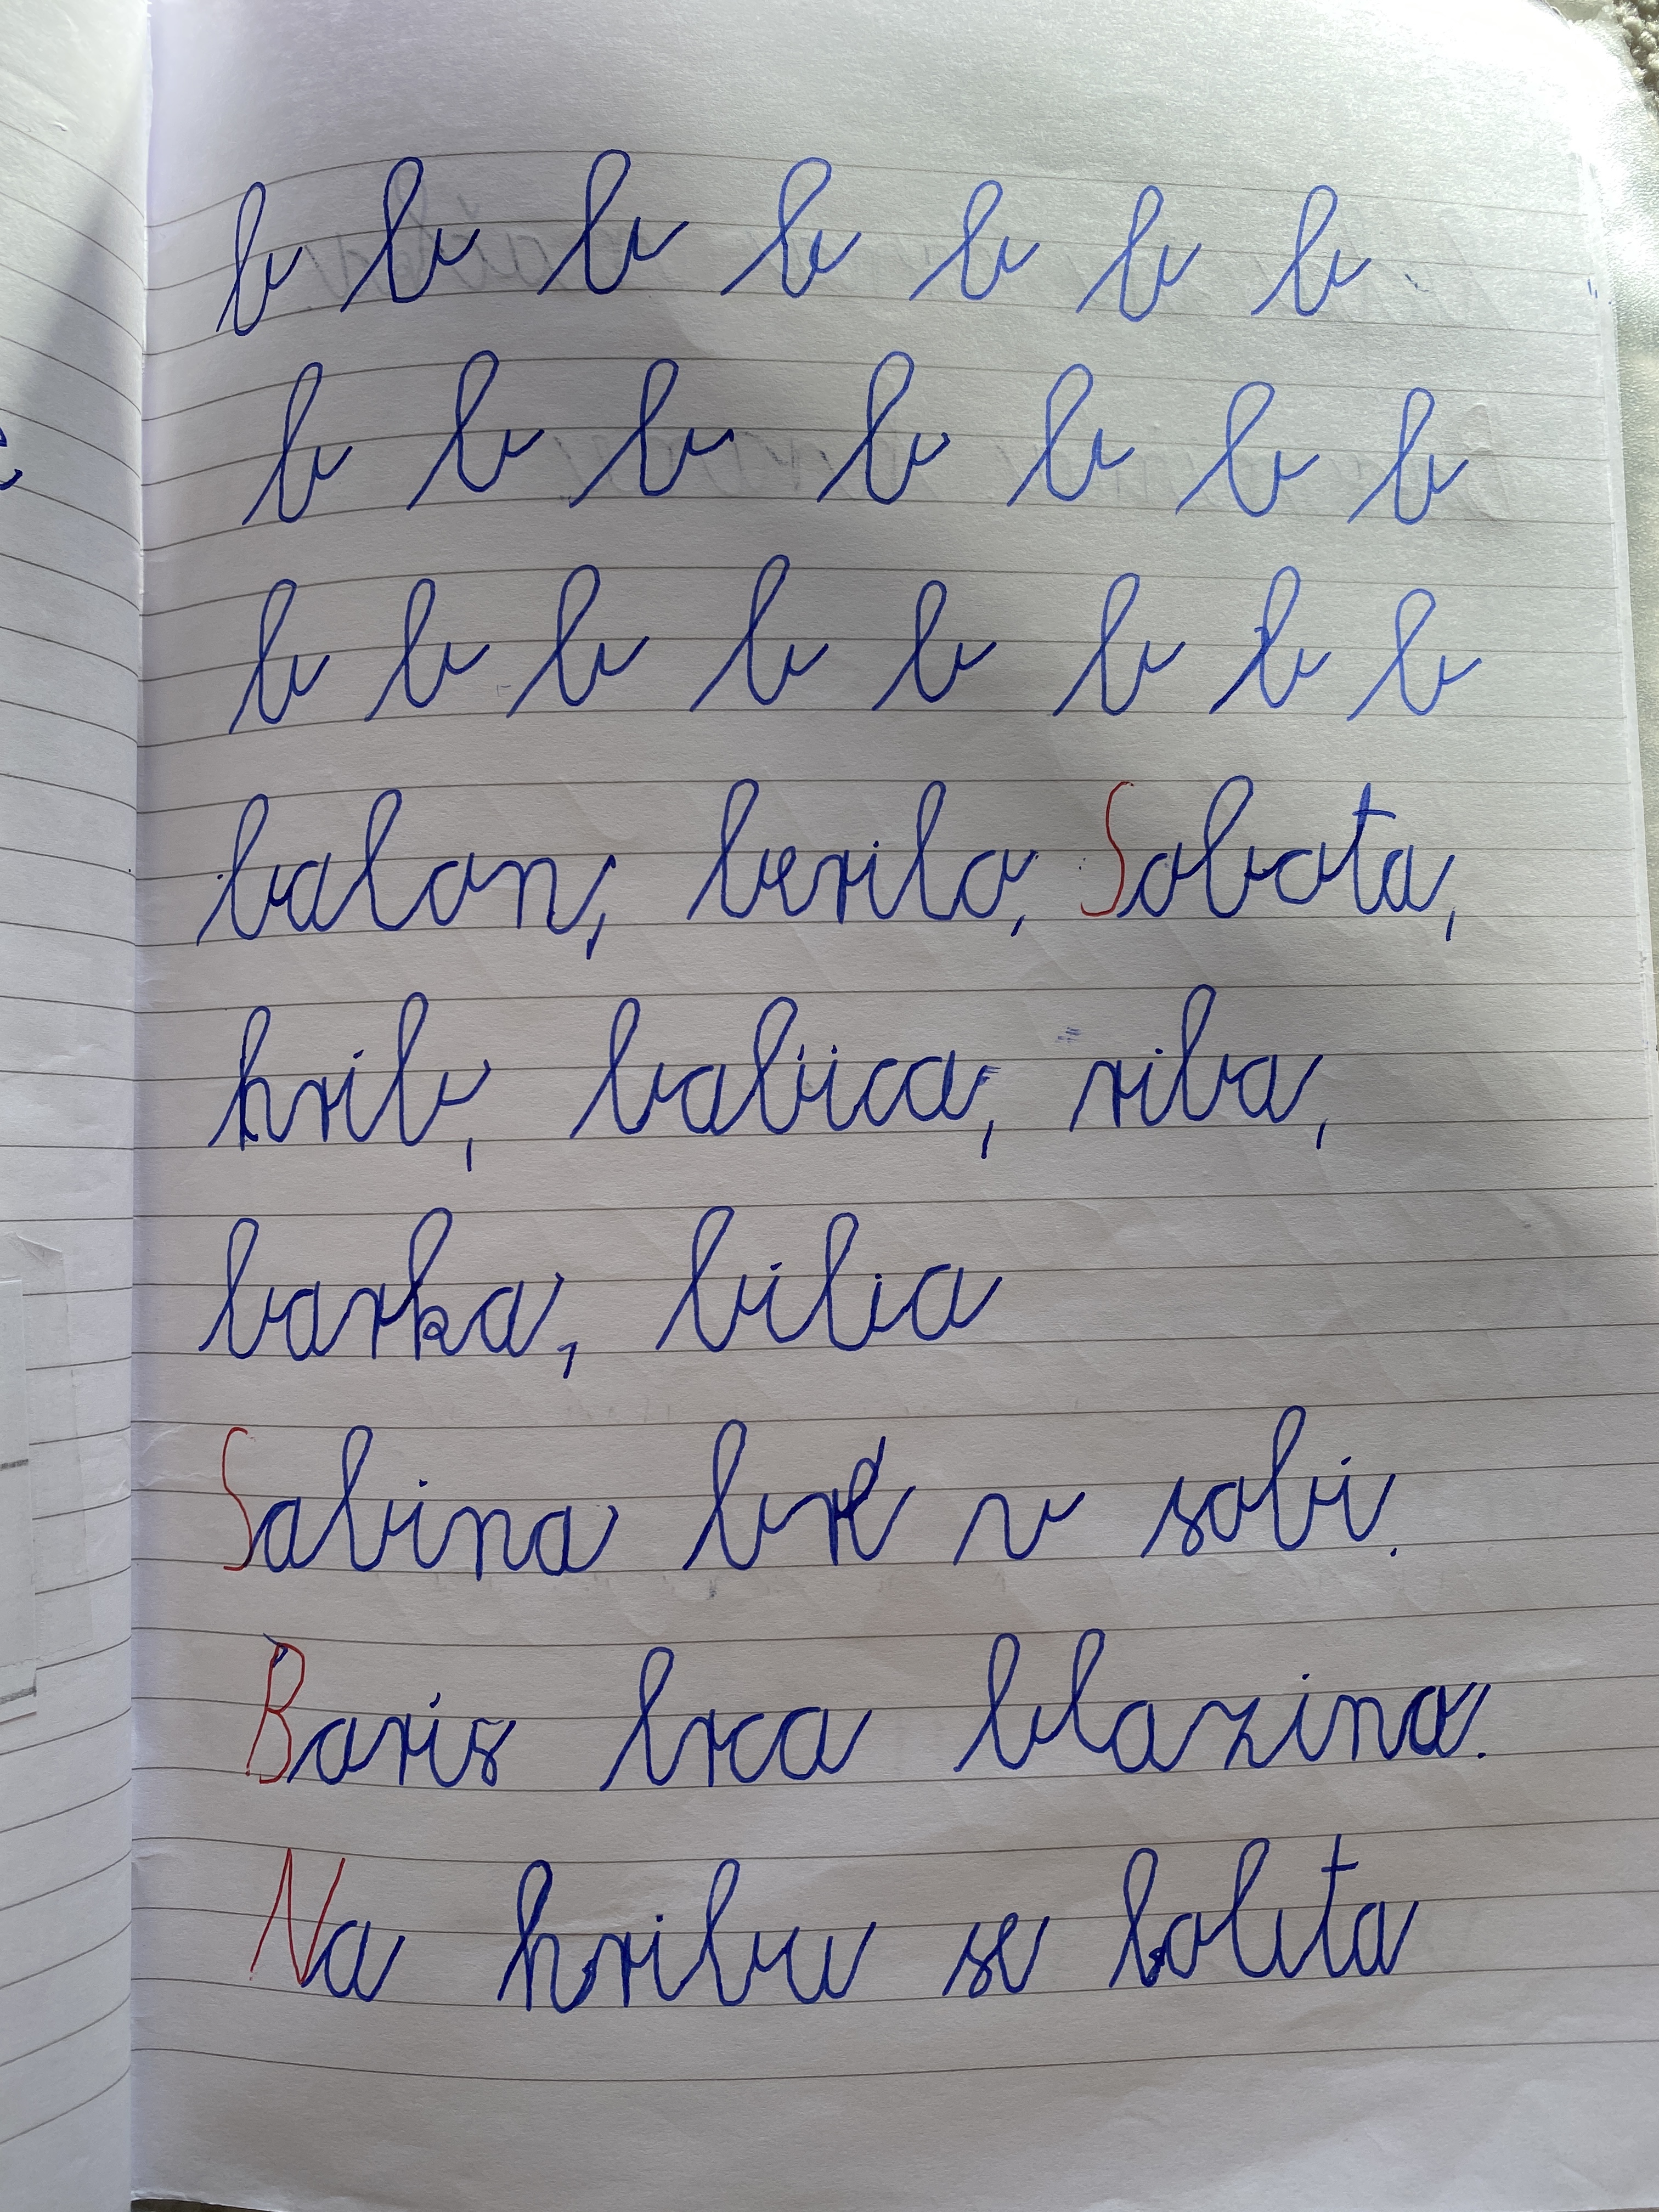 b b b b b b b
b b b b b b b
b b b b b b b b
balon, berilo, Sobota,
hrib, babica, riba,
barka, bilia
Sabina v sobi.
Boris brca blazina.
Na hribu se